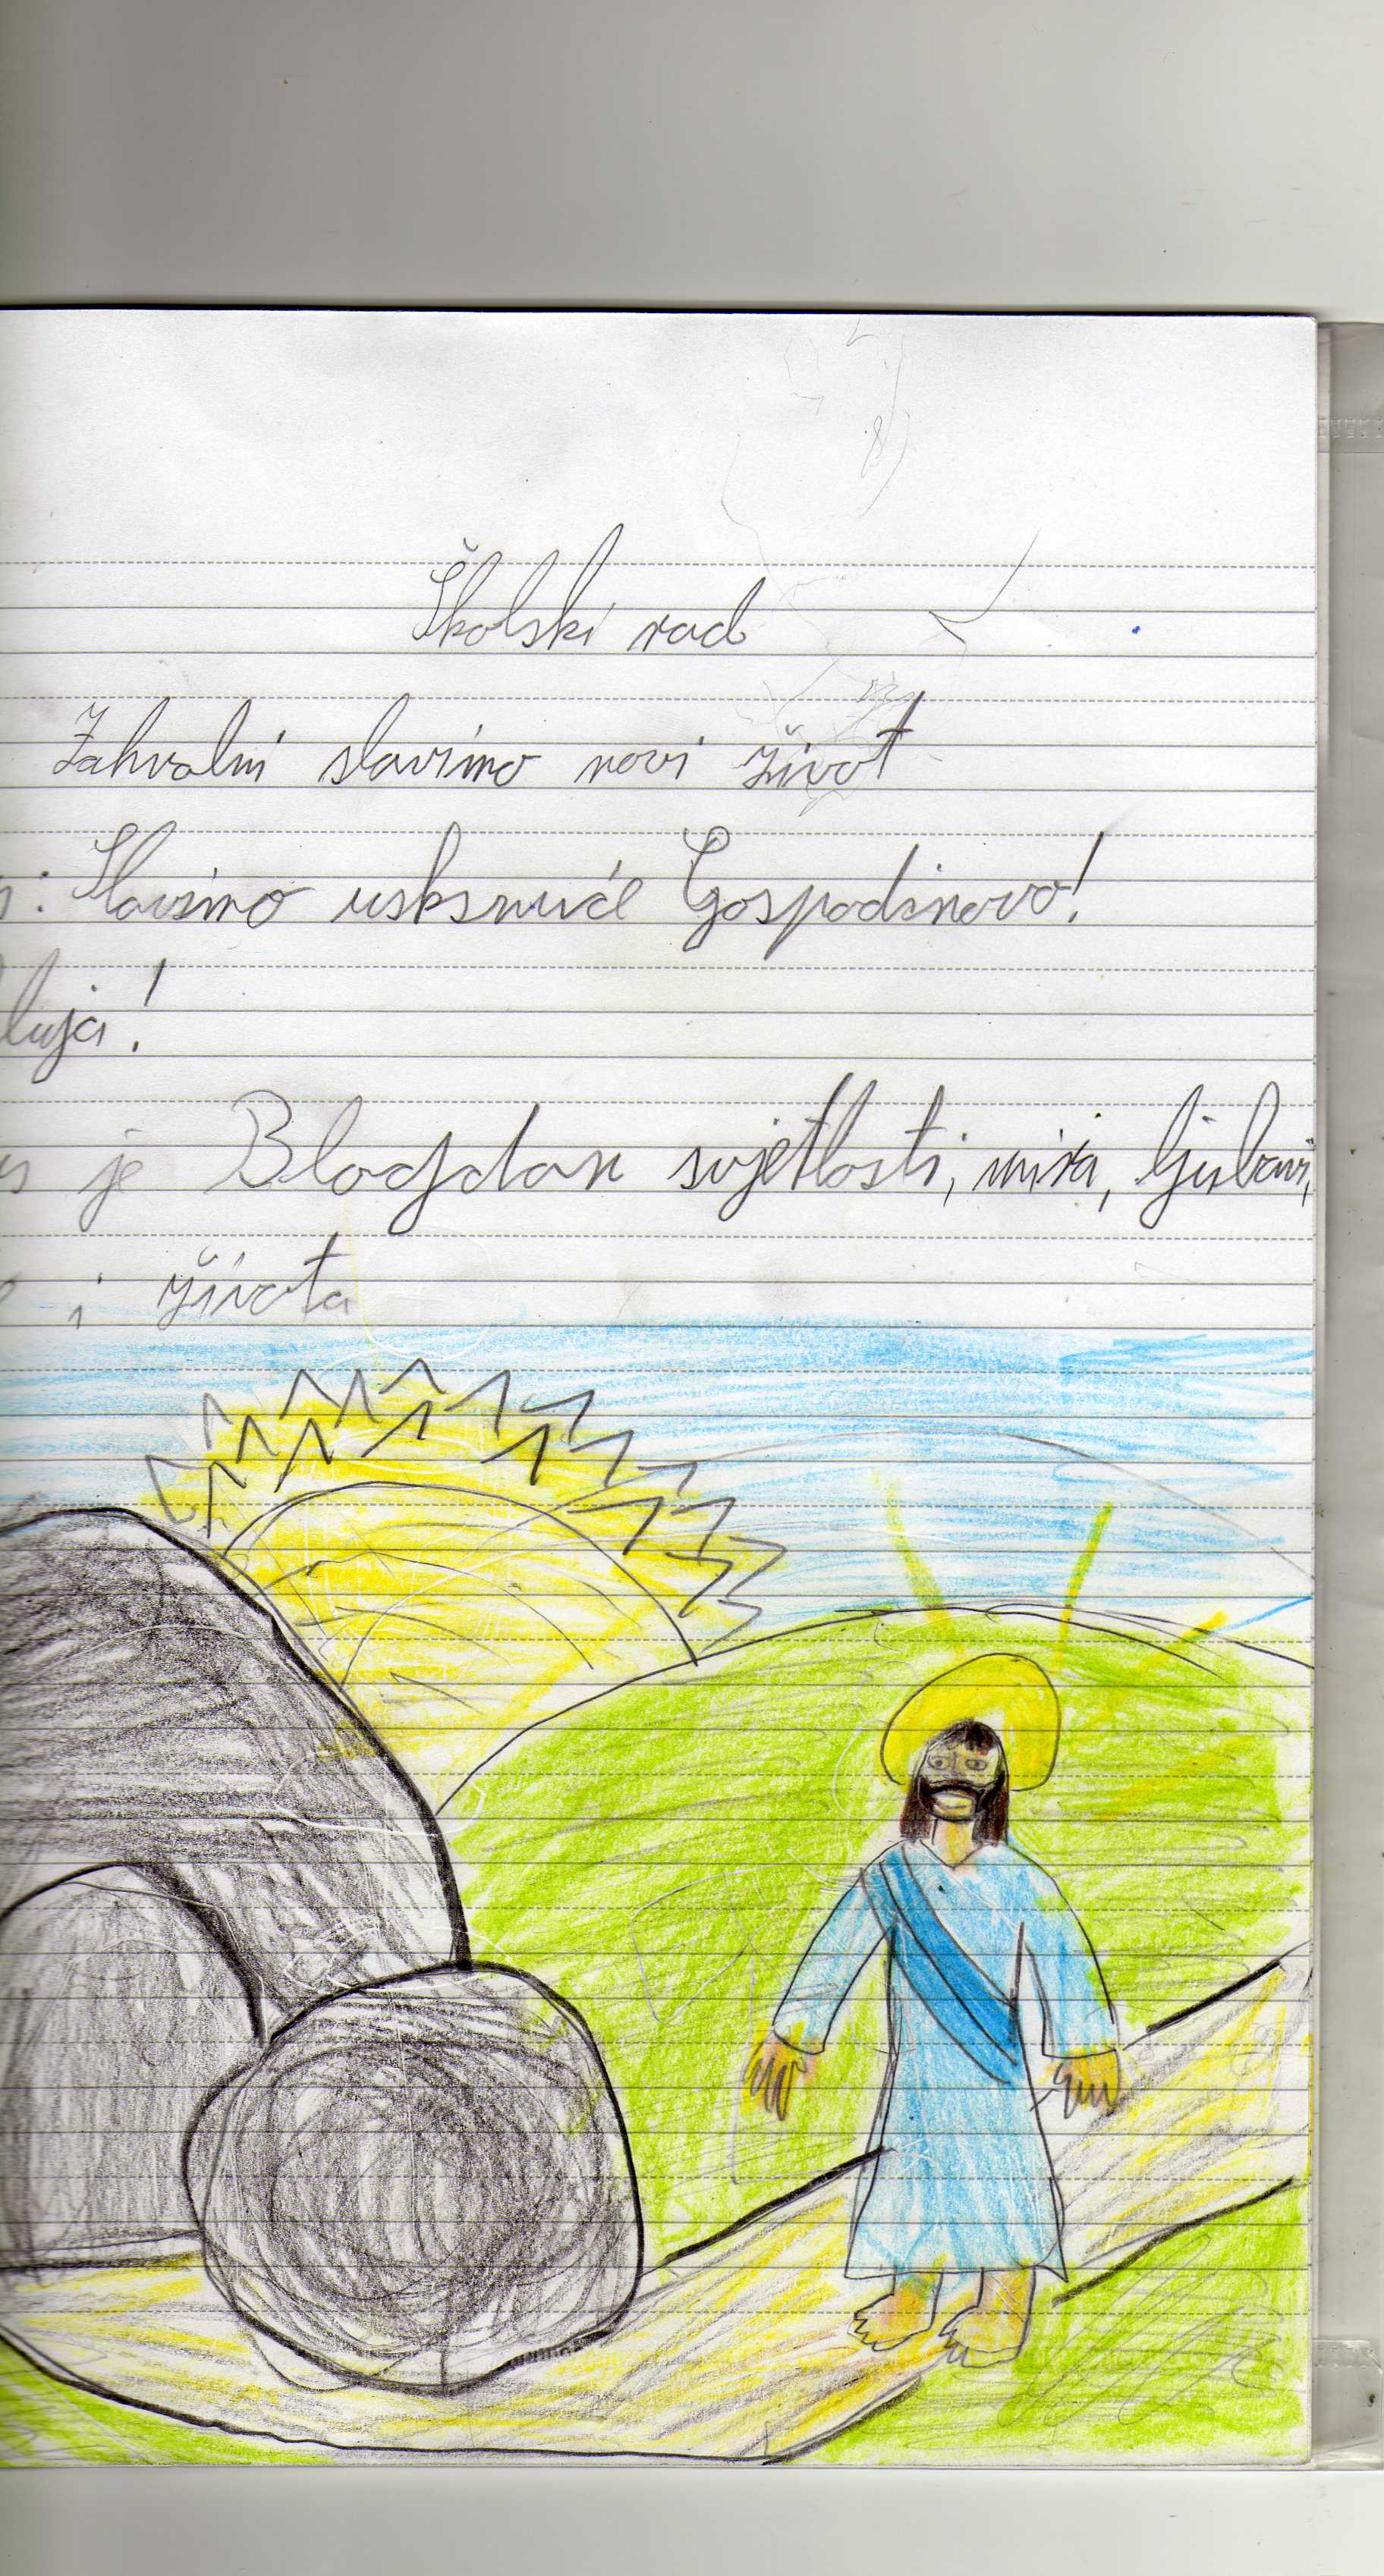 Školski rad
Zahvalni slavimo novi život
: Slavimo usksnuće Gospodinovo!
luja!
je Blagdan svjetlosti, mira, ljubavi,
i života